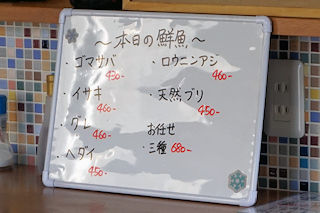 ～本日の鮮魚～
・ゴマサバ
430-
・イサキ
460-
・グレ
460-
・ヘダイ
450-
・ロウニンアジ
460-
・天然ブリ
450-
お任せ
・三種 680-